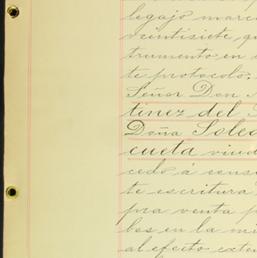 legajo marc
veintisiete qu
trumento en
te protocolo.
Señor Don
tinez del
Doña Soled
cueta viud
cedo á cens
te escritura
pra venta p
bes en la mi
al efecto exten